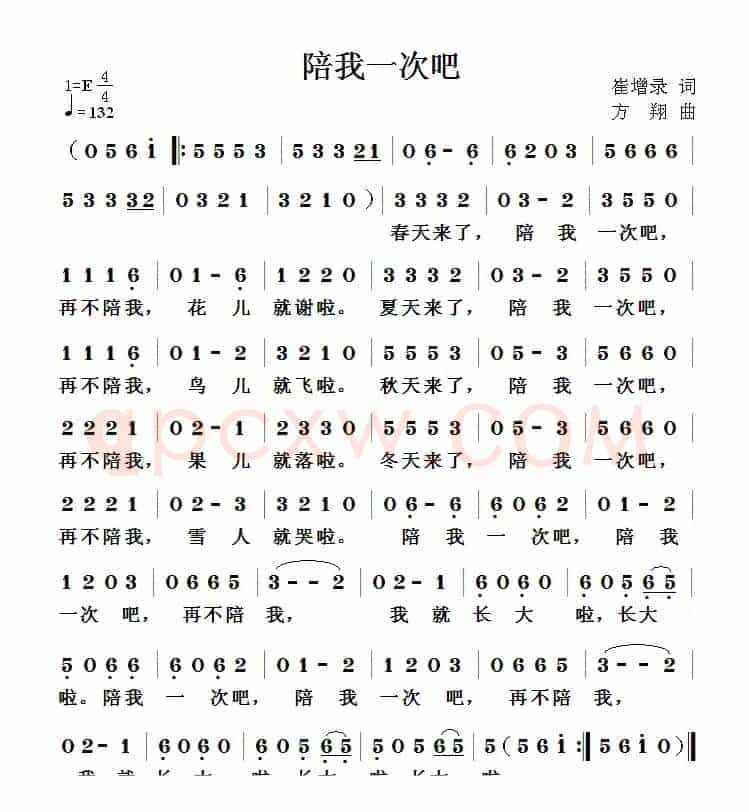 陪我一次吧
1=E 4/4
♩=132
崔增录 词
方 翔 曲
(0 5 6 i |: 5 5 5 3 | 5 3 3 21 | 0 6 - 6 | 6 2 0 3 | 5 6 6 6 |
5 3 3 32 | 0 3 2 1 | 3 2 1 0 ) | 3 3 3 2 | 0 3 - 2 | 3 5 5 0 |
春天来了， 陪 我 一次吧，
1 1 1 6 | 0 1 - 6 | 1 2 2 0 | 3 3 3 2 | 0 3 - 2 | 3 5 5 0 |
再不陪我， 花 儿 就谢啦。 夏天来了， 陪 我 一次吧，
1 1 1 6 | 0 1 - 2 | 3 2 1 0 | 5 5 5 3 | 0 5 - 3 | 5 6 6 0 |
再不陪我， 鸟 儿 就飞啦。 秋天来了， 陪 我 一次吧，
2 2 2 1 | 0 2 - 1 | 2 3 3 0 | 5 5 5 3 | 0 5 - 3 | 5 6 6 0 |
再不陪我， 果 儿 就落啦。 冬天来了， 陪 我 一次吧，
2 2 2 1 | 0 2 - 3 | 3 2 1 0 | 0 6 - 6 | 6 0 6 2 | 0 1 - 2 |
再不陪我， 雪 人 就哭啦。 陪 我 一 次吧， 陪 我
1 2 0 3 | 0 6 6 5 | 3 - - 2 | 0 2 - 1 | 6 0 6 0 | 6 0 5 65 |
一次 吧， 再不陪 我， 我 就 长 大 啦，长大
5 0 6 6 | 6 0 6 2 | 0 1 - 2 | 1 2 0 3 | 0 6 6 5 | 3 - - 2 |
啦。陪我 一 次吧， 陪 我 一 次 吧， 再不陪 我，
0 2 - 1 | 6 0 6 0 | 5 0 5 65 | 5 0 5 65 | 5 ( 5 6 i :| 5 6 i 0 ) |
qpcxw.COM